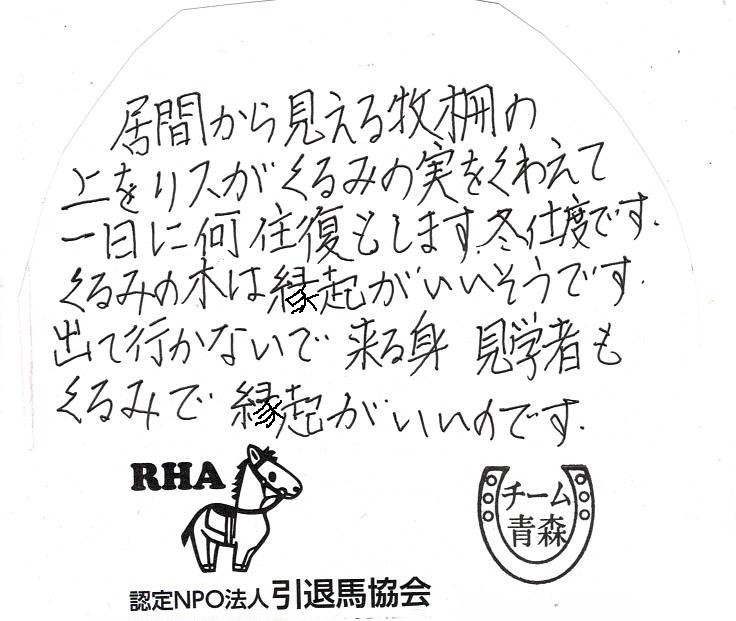 居間から見える牧柵の
上をリスがくるみの実をくわえて
一日に何往復もします.冬仕度です.
くるみの木は縁起がいいそうです.
出て行かないで 来る身 見学者も
くるみで 縁起がいいのです.
RHA
チーム
青森
認定NPO法人引退馬協会